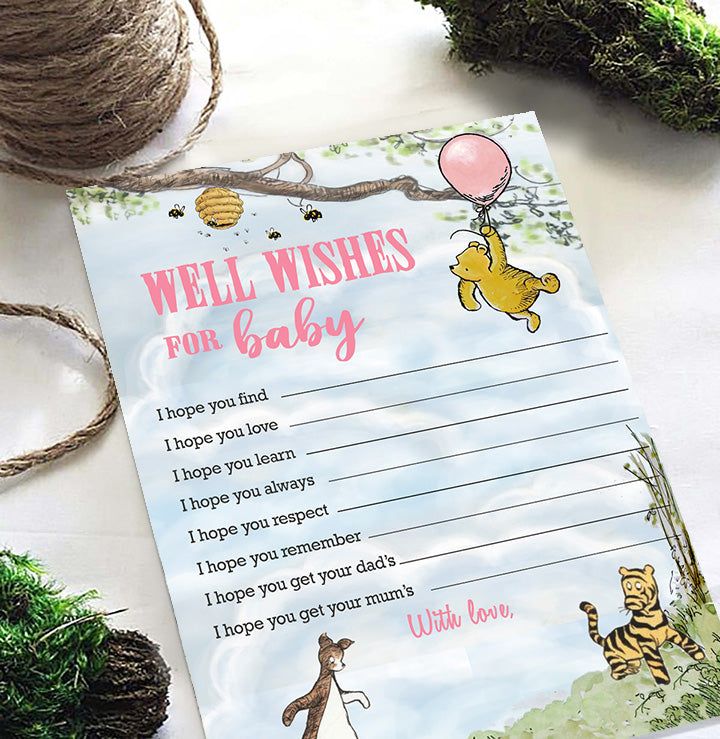 WELL WISHES
FOR baby
I hope you find
I hope you love
I hope you learn
I hope you always
I hope you respect
I hope you remember
I hope you get your dad's
I hope you get your mum's
With love,